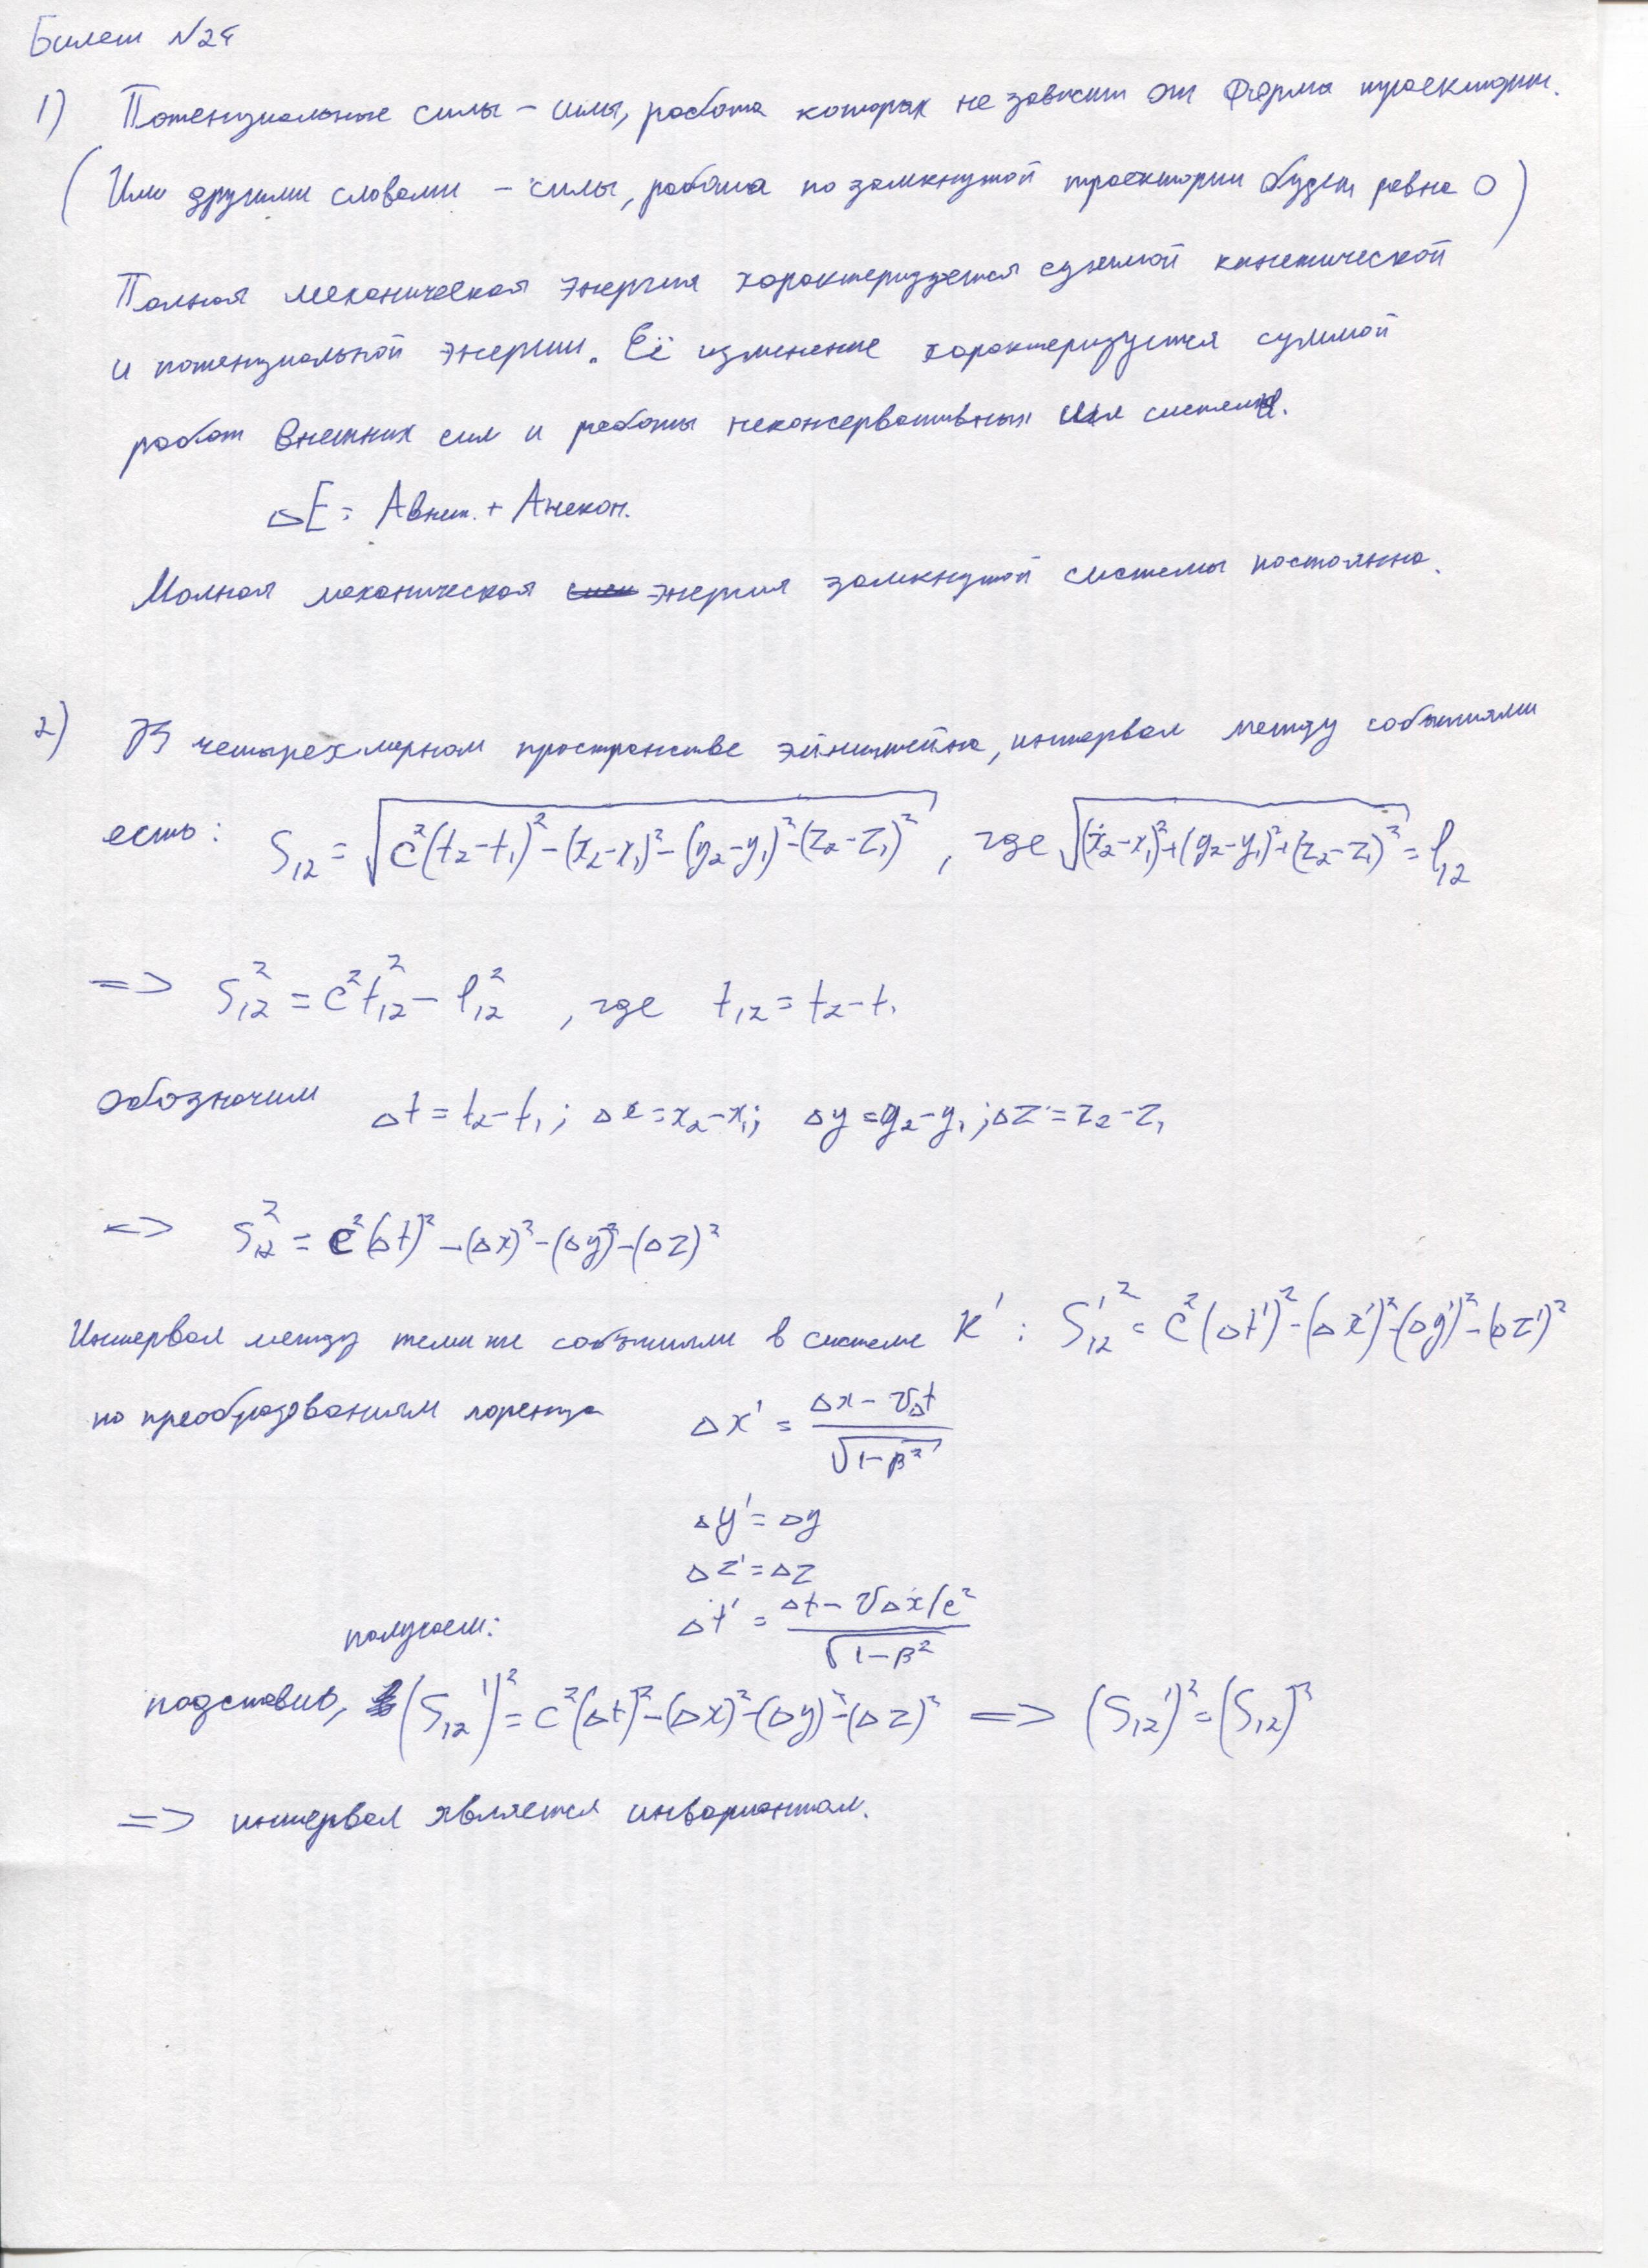 Билет №24
1) Потенциальные силы – силы, работа которых не зависит от формы траектории.
(Или другими словами – силы, работа по замкнутой траектории будет равна 0)
Полная механическая энергия характеризуется суммой кинетической
и потенциальной энергии. Её изменение характеризуется суммой
работ внешних сил и работы неконсервативных сил системы.
ΔE = Aвнеш. + Aнекон.
Полная механическая энергия замкнутой системы постоянна.
2) В четырехмерном пространстве эйнштейна, интервал между событиями
есть: S₁₂ = √(c²(t₂-t₁)² - (x₂-x₁)² - (y₂-y₁)² - (z₂-z₁)²), где √((x₂-x₁)² + (y₂-y₁)² + (z₂-z₁)²) = l₁₂
=> S₁₂² = c²t₁₂² - l₁₂², где t₁₂ = t₂ - t₁
обозначим Δt = t₂-t₁; Δx = x₂-x₁; Δy = y₂-y₁; Δz = z₂-z₁
=> S₁₂² = c²(Δt)² - (Δx)² - (Δy)² - (Δz)²
Интервал между теми же событиями в системе K': S'₁₂² = c²(Δt')² - (Δx')² - (Δy')² - (Δz')²
по преобразованиям лоренца Δx' = (Δx - vΔt)/√(1-β²)
Δy' = Δy
Δz' = Δz
Δt' = (Δt - vΔx/c²)/√(1-β²)
получаем:
подставив, (S₁₂')² = c²(Δt)² - (Δx)² - (Δy)² - (Δz)² => (S₁₂')² = (S₁₂)²
=> интервал является инвариантом.